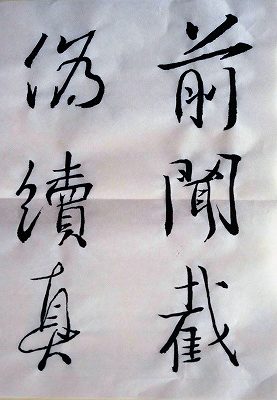 前聞截
偽續真